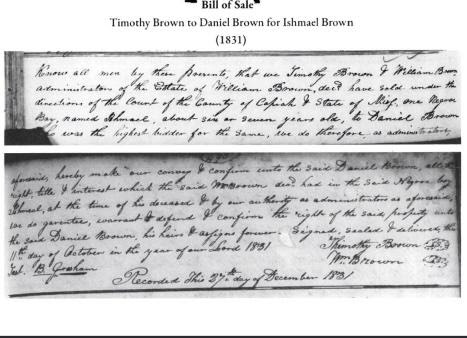 Bill of Sale
Timothy Brown to Daniel Brown for Ishmael Brown
(1831)
Know all men by these presents, that we Timothy Brown & William Brown
administrators of the Estate of William Brown, decd have sold under the
directions of the Court of the County of Copiah & State of Missi, one Negroe
Boy, named Ishmael, about six or seven years old, to Daniel Brown
who was the highest bidder for the same, we do therefore, as administrators
aforesaid, hereby make our convey & confirm unto the said Daniel Brown, all the
right, title & interest which the said Wm Brown decd had in the said Negroe boy
Ishmael, at the time of his deceased & by our authority as administrators as aforesaid,
we do garentee, warrant & defend & confirm the right of the said property unto
the said Daniel Brown, his heirs & assigns forever. Signed, sealed & delivered this
11th day of October in the year of our Lord 1831
Timothy Brown
Test. B. Gresham
Wm Brown
Recorded This 27th day of December 1831